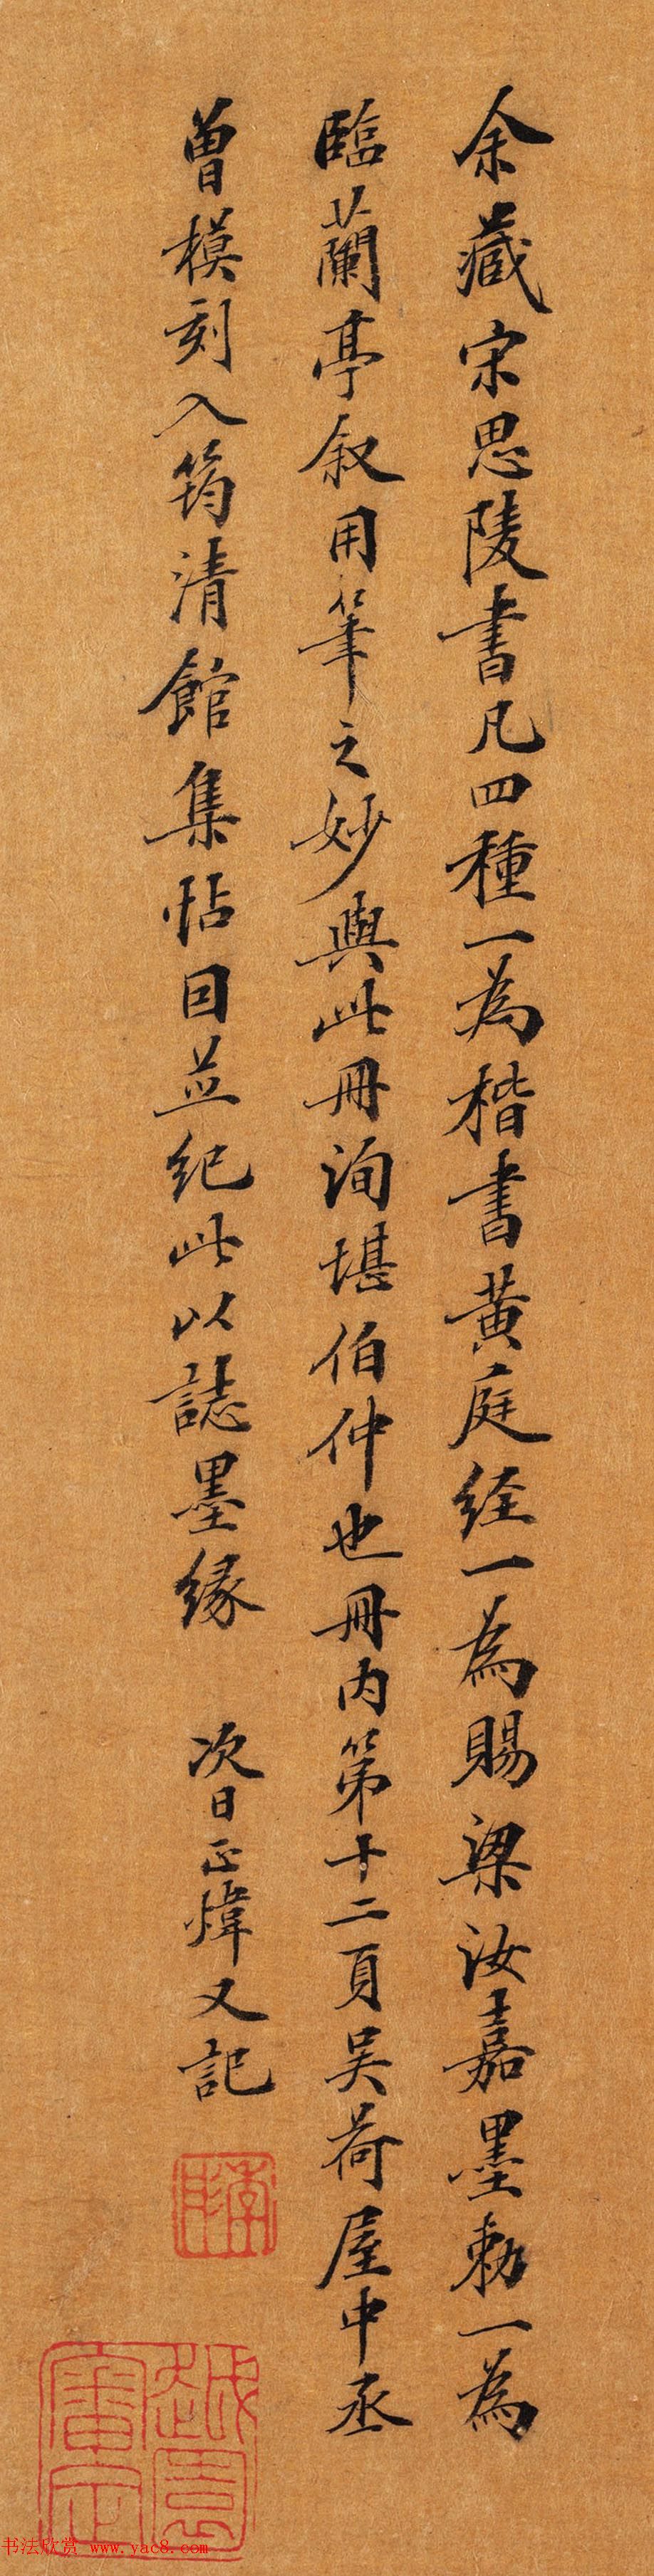 余藏宋思陵書凡四種一為楷書黄庭经一為賜梁汝嘉墨勅一為
臨蘭亭叙用筆之妙與此冊洵堪伯仲也冊内第十二頁吴荷屋中丞
曽模刻入筠清館集帖因並纪此以誌墨緣
次日正煒又記
季彤
越園審定
书法欣赏 www.yac8.com